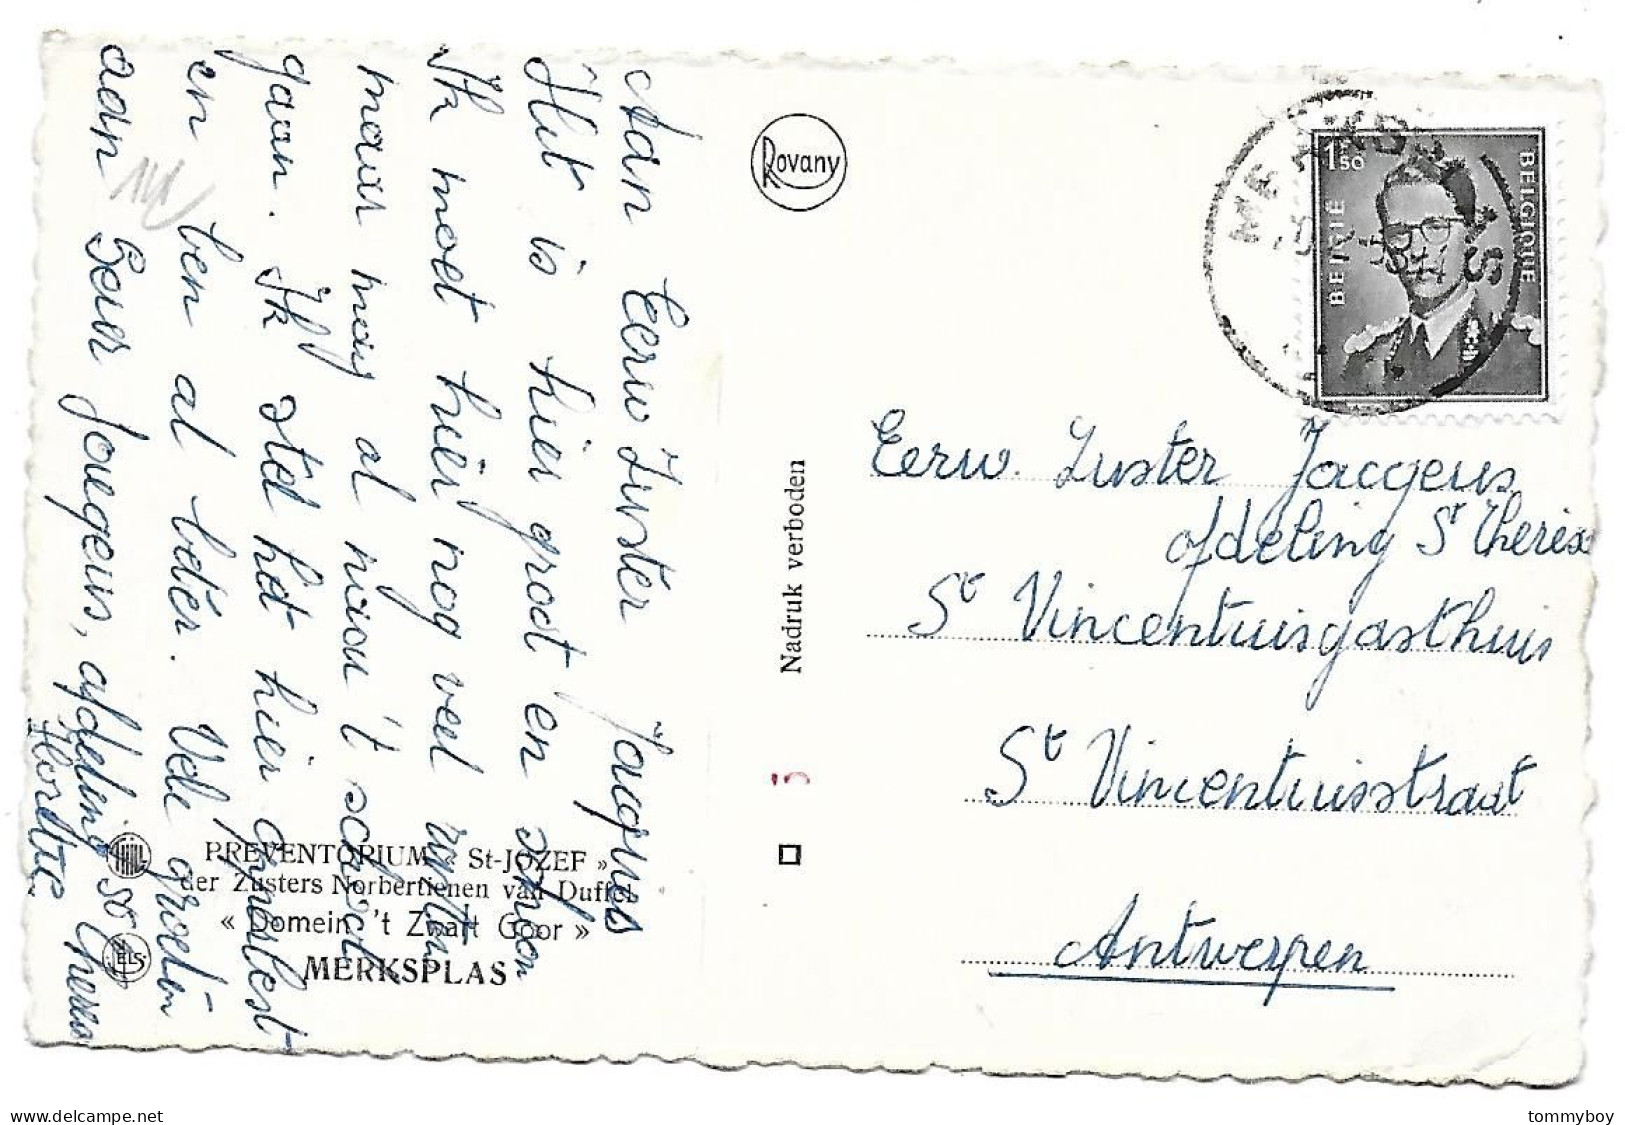 Aan Eerw Zuster Jaqgeus
Het is hier groot en schoon
Ik moet hier nog veel rusten
maar mag al naar 't school
gaan. Ik stel het hier opbest
en ben al beter. Vele groeten
aan Soeur Jacqeus, afdeling St Theresia
Rovany
Nadruk verboden
5
PREVENTORIUM « St-JOZEF »
der Zusters Norbertienen van Duffel
« Domein 't Zwart Goor »
MERKSPLAS
ELS
MERKSPLAS
1 50
BELGIE
BELGIQUE
Eerw. Zuster Jacqeus
afdeling St Theresia
St Vincentiusgasthuis
St Vincentiusstraat
Antwerpen
tommyboy